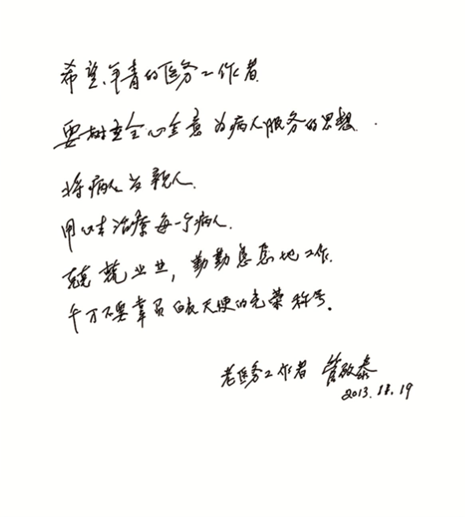 希望年青的医务工作者
要树立全心全意为病人服务的思想.
将病人当亲人.
用心来治疗每一个病人.
兢兢业业，勤勤恳恳地工作.
千万不要辜负白衣天使的光荣称号。
老医务工作者 管启泰
2013.11.19